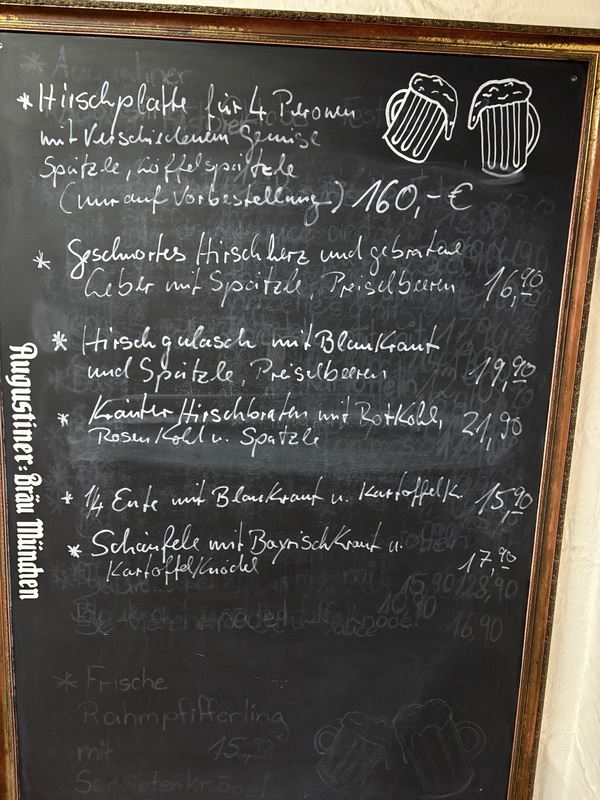 * Hirschplatte für 4 Personen
mit Verschiedenem Gemüse
Spätzle, Löffelspätzle
(nur auf Vorbestellung) 160,- €
* Geschmortes Hirschherz und gebratene
Leber mit Spätzle, Preiselbeeren 16,90
* Hirschgulasch mit Blaukraut
und Spätzle, Preiselbeeren 19,90
* Kräuter Hirschbraten mit Rotkohl, 21,90
Rosenkohl u. Spätzle
* 1/4 Ente mit Blaukraut u. Kartoffelk. 15,90
* Schäufele mit Bayrischkraut u.
Kartoffelknödel 17,90
* Frische
Rahmpfifferling
mit 15,90
Serviettenknödel
Augustiner-Bräu München